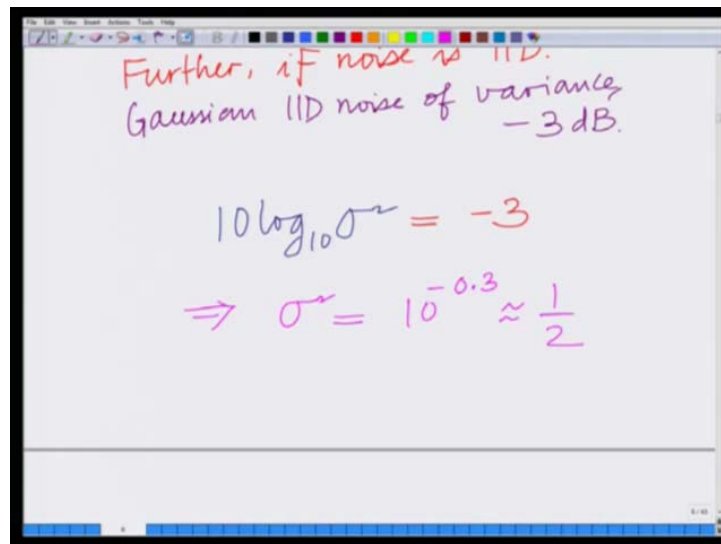 File Edit View Insert Actions Tools Help
Further, if noise is IID.
Gaussian IID noise of variance,
-3 dB.
10 log₁₀ σ² = -3
⇒ σ² = 10^-0.3 ≈ 1/2